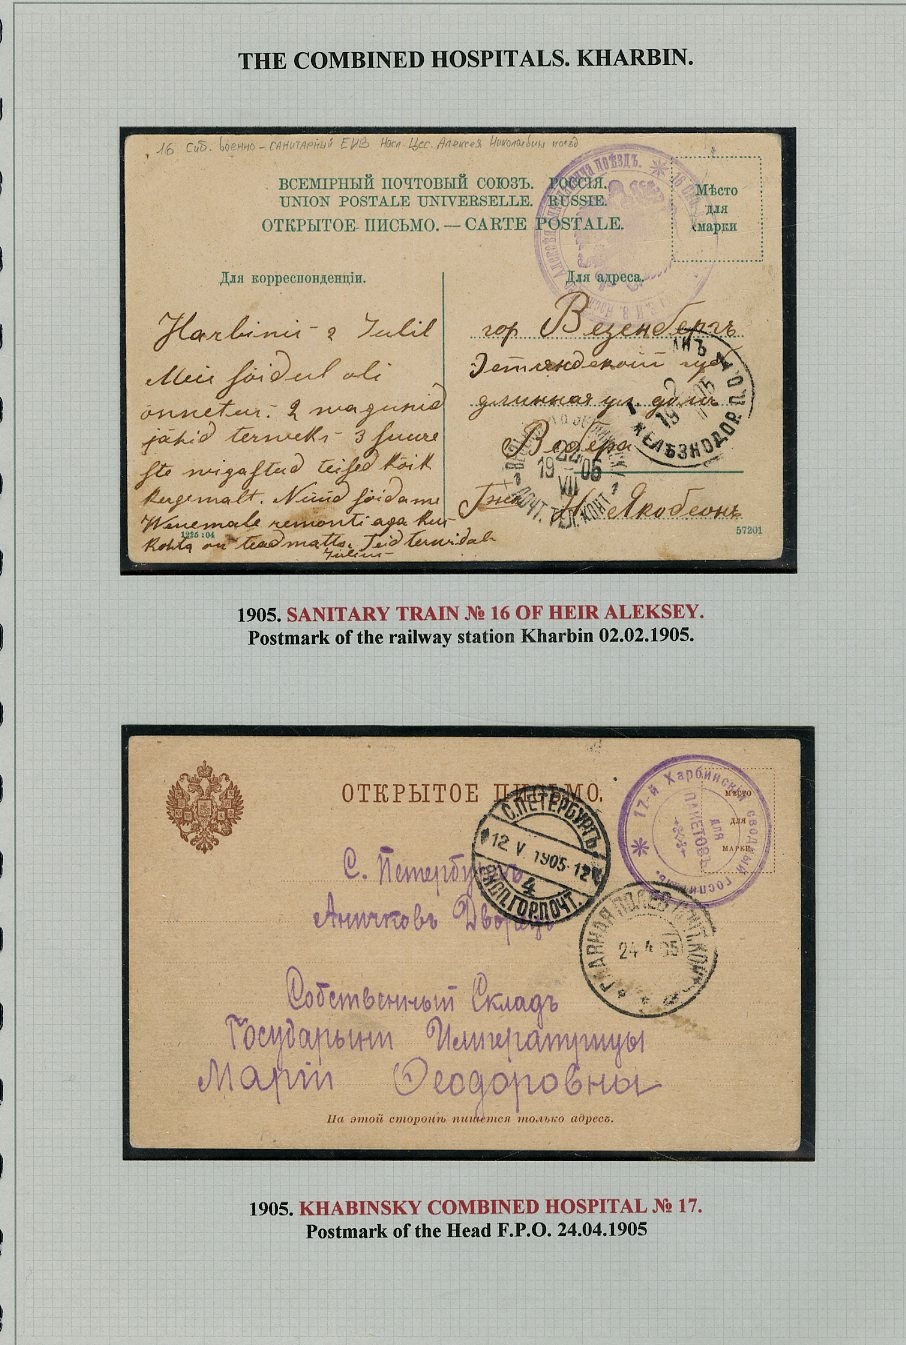 THE COMBINED HOSPITALS. KHARBIN.
16 Сиб. военно-санитарный ЕИВ Насл. Цес. Алексея Николаевича поезд
ВСЕМІРНЫЙ ПОЧТОВЫЙ СОЮЗЪ. РОССІЯ.
UNION POSTALE UNIVERSELLE. RUSSIE.
ОТКРЫТОЕ ПИСЬМО. — CARTE POSTALE.
Мѣсто
для
марки
Для корреспонденціи.
Для адреса.
Harbinis 2 Julil
Meie sõidul oli
õnnetus. 2 wagunid
jäid terweks 3 suure
wigastud teised kõik
kergemalt. Nüüd sõidame
Wenemale remonti aga kui
kohta on teadmatta. Teid terwidab
Julius
гор Везенбергъ
Эстляндской губ
длинная ул. домъ
Нодера
Якобсонъ
22
19 05
VII
ПОЧТ. ТЕЛ. КОНТ.
2
19 05
ЖЕЛѢЗНОДОР. П.О.
1225:04
57201
1905. SANITARY TRAIN № 16 OF HEIR ALEKSEY.
Postmark of the railway station Kharbin 02.02.1905.
ОТКРЫТОЕ ПИСЬМО.
мѣсто
для
марки
17-й Харбинскій сводный госпиталь.
для
ПАКЕТОВЪ
С.ПЕТЕРБУРГЪ
12 V 1905·12
4
ЭКСП.ГОР.ПОЧТ.
ГЛАВНАЯ ПОЛЕВ. ПОЧТ. КОН.
24 4 05
С. Петербургъ
Аничковъ Дворецъ
Собственный Складъ
Государыни Императрицы
Маріи Ѳеодоровны
На этой сторонѣ пишется только адресъ.
1905. KHABINSKY COMBINED HOSPITAL № 17.
Postmark of the Head F.P.O. 24.04.1905